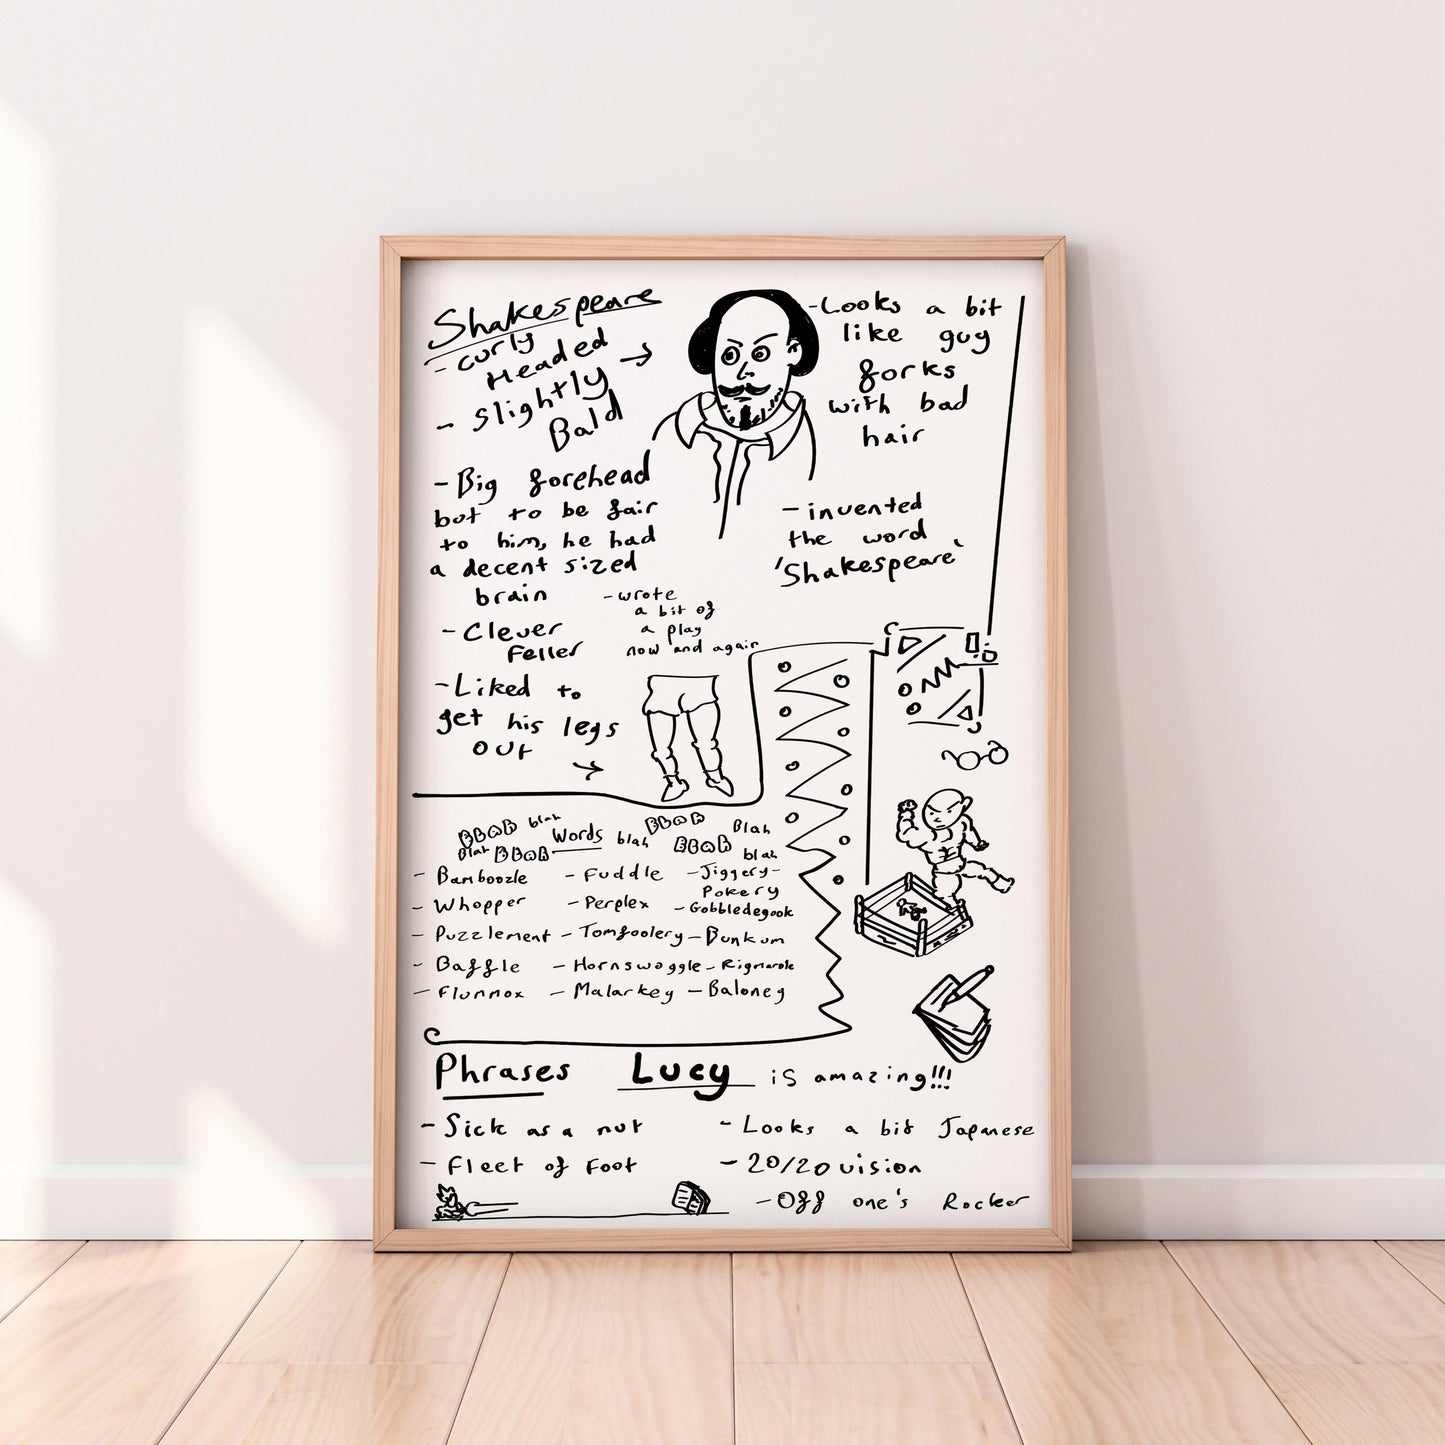 Shakespeare
- curly
Headed
- Slightly
Bald
- Big forehead
but to be fair
to him, he had
a decent sized
brain
- Clever
Feller
- Liked to
get his legs
out
- Looks a bit
like guy
forks
with bad
hair
- invented
the word
'Shakespeare'
- wrote
a bit of
a play
now and again
BLAH blah BLAH
Words blah Blah
Blah BLAH BLAH blah
- Bamboozle
- Whopper
- Puzzlement
- Baffle
- Flunnox
- Fuddle
- Perplex
- Tomfoolery
- Hornswoggle
- Malarkey
- Jiggery-
Pokery
- Gobbledegook
- Bunkum
- Rigmarole
- Baloney
Phrases Lucy is amazing!!!
- Sick as a nut
- Fleet of Foot
- Looks a bit Japanese
- 20/20 vision
- Off one's Rocker